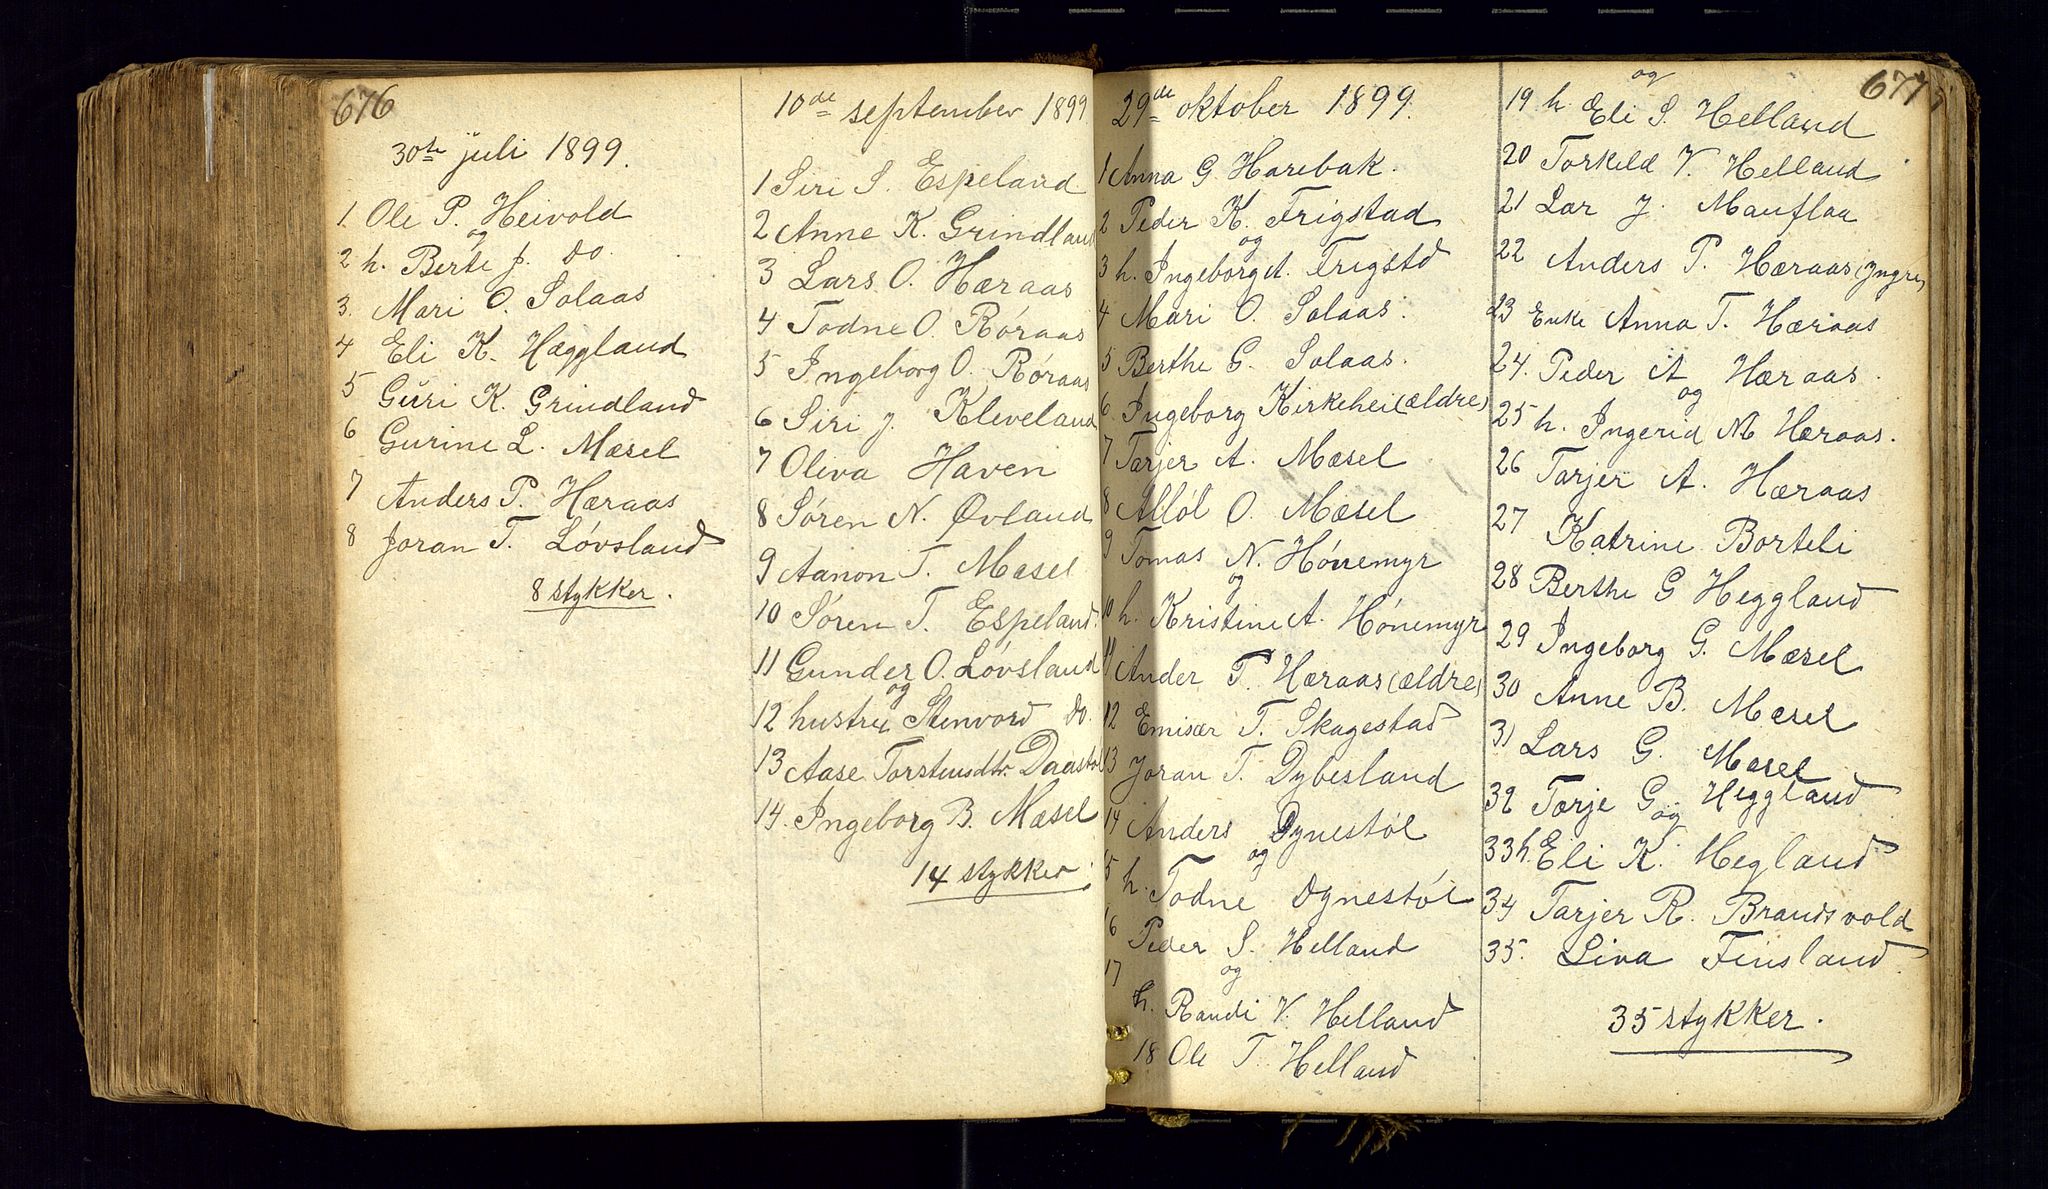 676
30te juli 1899.
1 Ole P. Heivold
og
2 h. Berte J. do.
3. Mari O. Solaas
4 Eli K. Hæggland
5 Guri K. Grindland
6 Gurine L. Mæsel
7 Anders P. Hæraas
8 Joran T. Løvsland
8 stykker.
10de september 1899
1 Siri S. Espeland
2 Anne K. Grindland
3 Lars O. Hæraas
4 Todne O. Røraas
5 Ingeborg O. Røraas
6 Siri J. Kleveland
7 Oliva Haven
8 Søren N. Øvland
9 Aanon T. Mæsel
10 Søren T. Espeland.
11 Gunder O. Løvsland
og
12 hustru Stenvord do.
13 Aase Torstensdtr Daastøl
14. Ingeborg B. Mæsel
14 stykker.
29de oktober 1899.
1 Anna G Harebak.
2 Peder K. Frigstad
og
3 h. Ingeborg A. Frigstd
4 Mari O. Solaas.
5 Berthe G. Solaas.
6. Ingeborg Kirkehei (ældre)
7 Tarjer A. Mæsel
8 Alløl O. Mæsel
9 Tomas N. Hønemyr
og
10 h. Kristine A. Hønemyr
11 Ander T. Hæraas (ældre)
12 Emisær T. Skagestad
13 Joran T. Dybesland
14 Anders Dynestøl
og
15 h. Todne Dynestøl
16 Peder S. Helland
og
17 h. Randi V. Helland
18 Ole T. Helland
677
og
19 h. Eli S. Helland
20 Torkild V. Helland
21 Lar J. Mauflaa
22 Anders P. Hæraas (Yngre)
23 Enke Anna T. Hæraas
24. Peder A Hæraas.
og
25 h. Ingerid M Hæraas.
26 Tarjer A. Hæraas
27 Katrine Borteli
28 Berthe G Heggland
29 Ingeborg G. Mæsel
30 Anne B. Mæsel
31 Lars G. Mæsel
32 Tarje G. Heggland
og
33 h. Eli K. Hegland
34 Tarjer R. Brandsvold
35. Liva Finsland.
35 stykker.